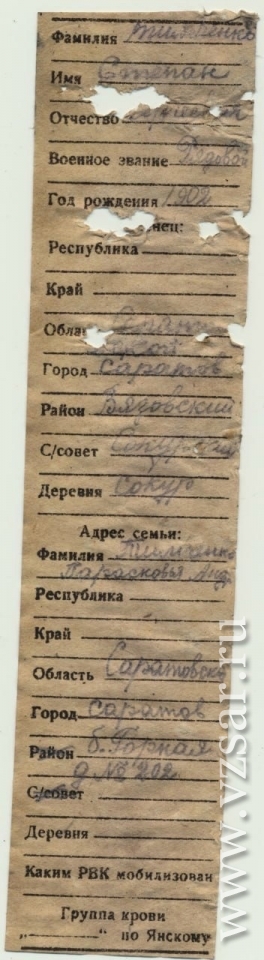 Фамилия Тимченко
Имя Степан
Отчество
Военное звание Рядовой
Год рождения 1902
нец:
Республика
Край
Облас
Город Саратов
Район Вяговский
С/совет Сокурский
Деревня Сокур
Адрес семьи:
Фамилия Тимченко
Парасковья Анд.
Республика
Край
Область Саратовск
Город Саратов
Район б. Горная
д № 202
С/совет
Деревня
Каким РВК мобилизован
Группа крови
„ “ по Янскому
www.vzsar.ru